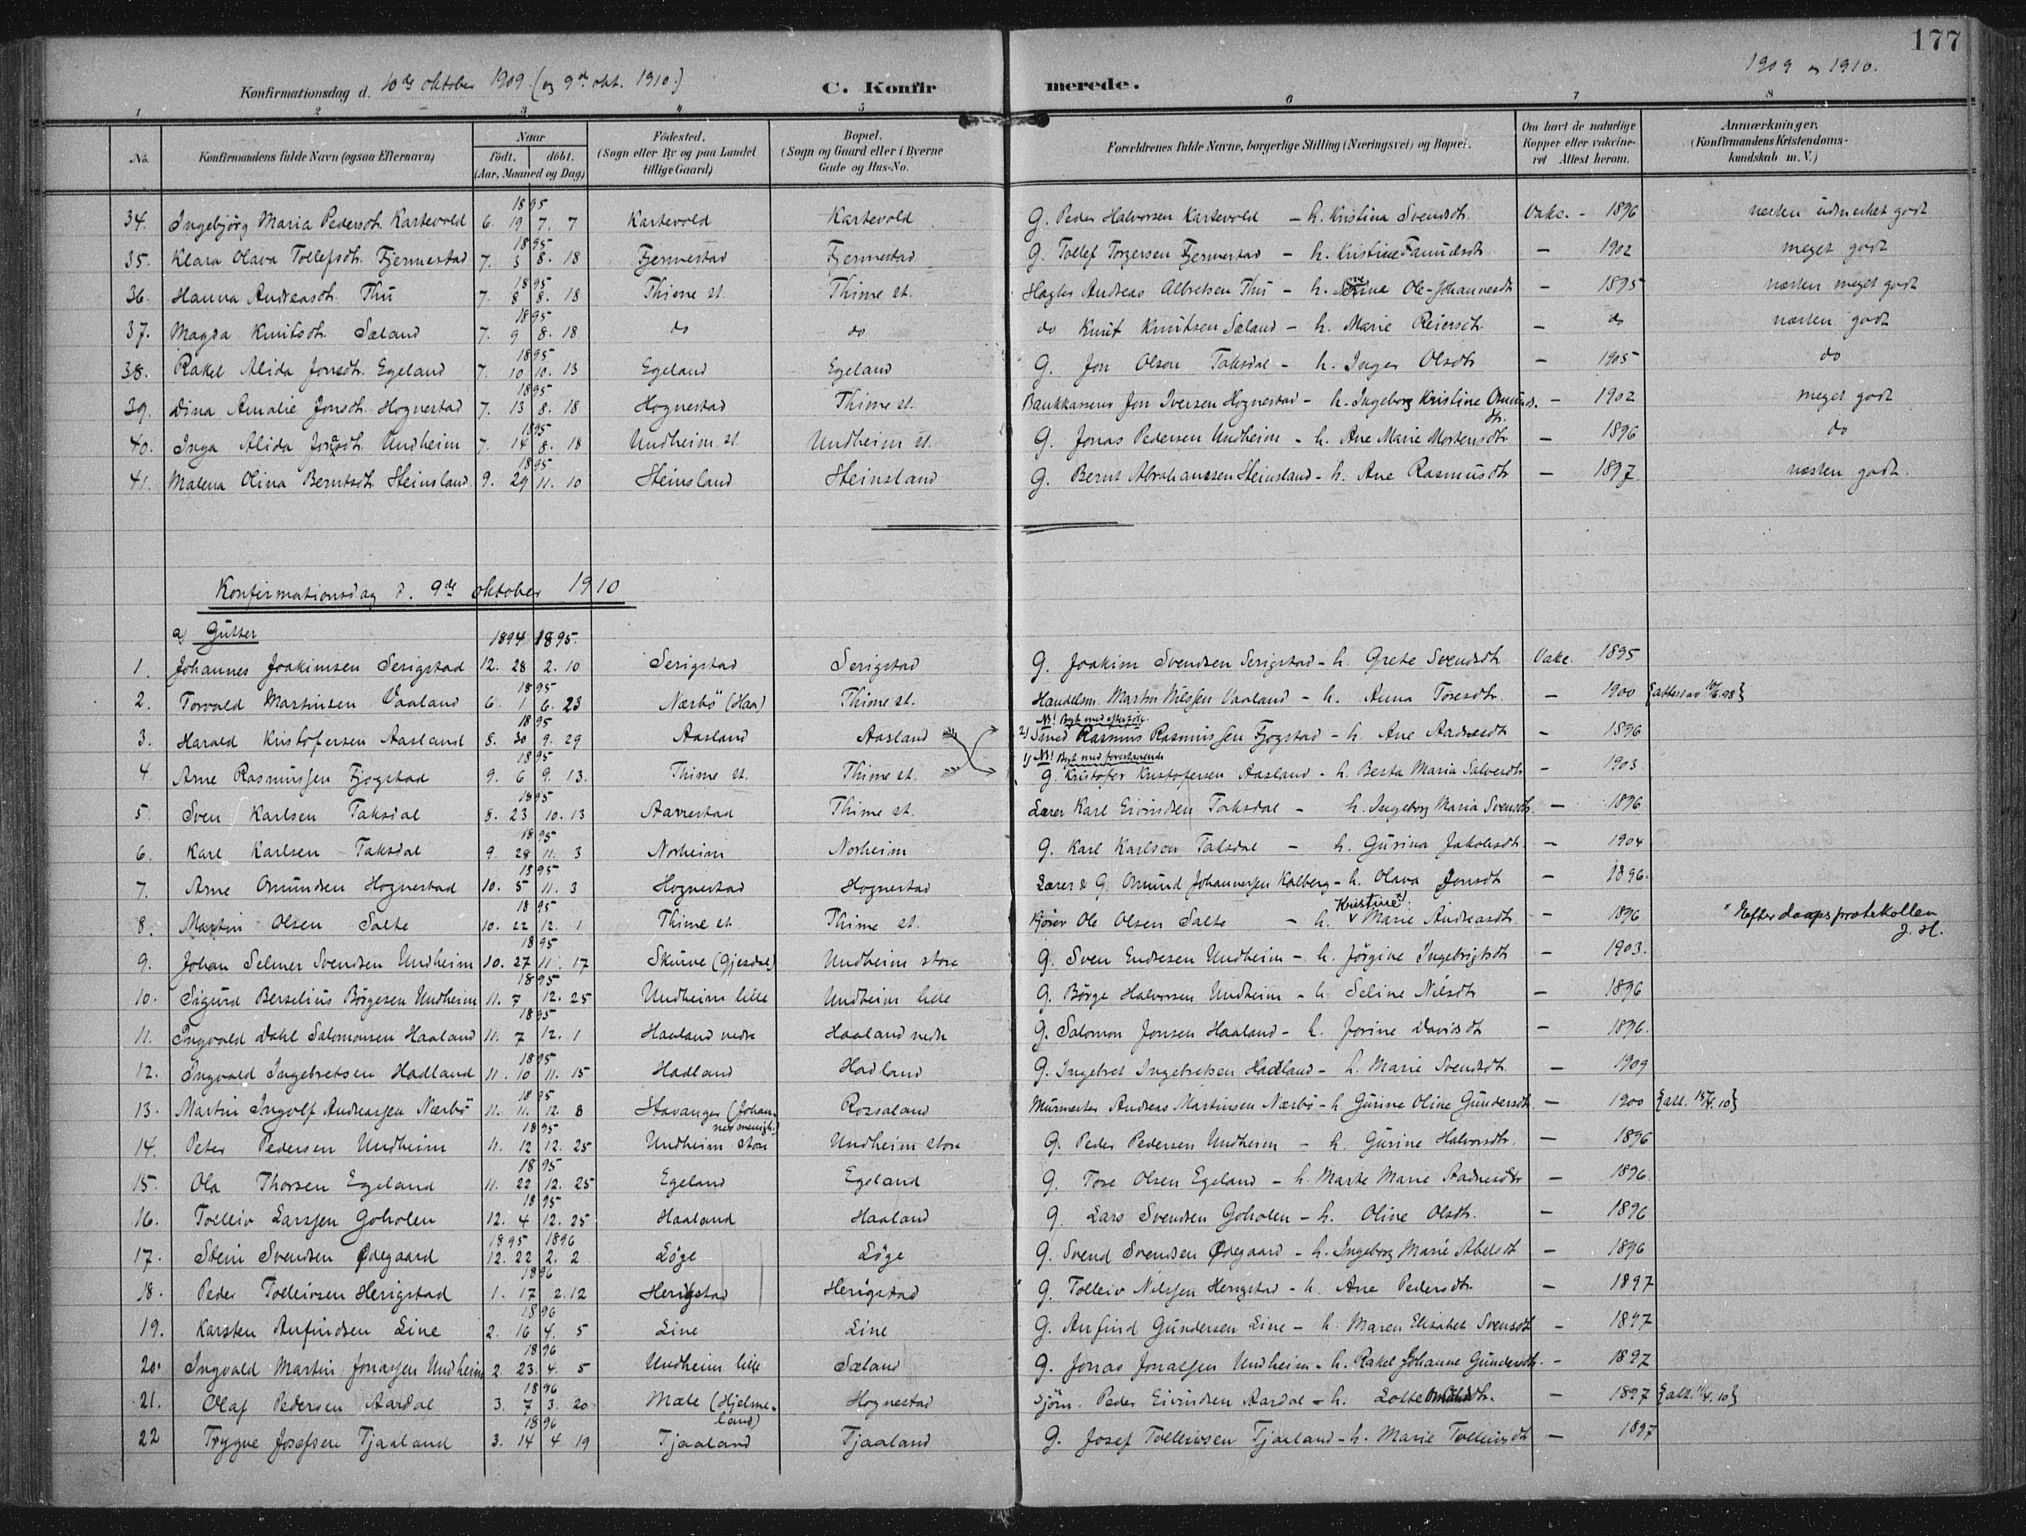 177
1909 og 1910.
Konfirmationsdag d. 10de oktober 1909. (og 9de okt. 1910.) C. Konfir merede.
1 2 3 4 5 6 7 8
No. Konfirmandens fulde Navn (ogsaa Efternavn) Naar født. døbt. (Aar, Maaned og Dag) Fødested. (Sogn eller By og paa Landet tillige Gaard) Bopæl. (Sogn og Gaard eller i Byerne Gade og Hus-No. Forældrenes fulde Navne, borgerlige Stilling (Næringsvei) og Bopæl. Om havt de naturlige Kopper eller vakcineret Attest herom. Anmærkninger. (Konfirmandens Kristendomskundskab m. V.)
34. Ingebjörg Maria Pedersdt. Kartevold 1895 6. 19 7. 7 Kartevold Kartevold G. Peder Halvorsen Kartevold - h. Kristina Svendsdt. Vakc. - 1896 næsten udmerket godt
35. Klara Olava Tollefsdt. Fjermestad 1895 7. 3 8. 18 Fjermestad Fjermestad G. Tollef Torgersen Fjermestad - h. Kristine — 1902 meget godt
36. Hanna Andreasdt. Thu 1895 7. 8 8. 18 Thime st. Thime st. Andreas Albretsen Thu - h. Ole-Johannesdt — 1895 næsten meget godt
37. Magda Knutsdt. Sæland 1895 7. 9 8. 18 do do do Knut Knutsen Sæland - h. Marie Reiersdt. — do næsten godt
38. Rakel Alida Jonsdt. Egeland 1895 7. 10 10. 13 Egeland Egeland G. Jon Olson Taksdal - h. Inger Olsdt — 1905 do
39. Dina Amalie Jonsdt. Hognestad 1895 7. 13 8. 18 Hognestad Thime st. Bankkaserer Jon Iversen Hognestad - h. Ingeborg Kristine Omunds-dt. — 1902 meget godt
40. Inga Alida Jonasdt. Undheim 1895 7. 14 8. 18 Undheim st. Undheim st. G. Jonas Pedersen Undheim - h. Ane Marie Mortensdt. — 1896 do
41. Malena Olina Berntsdt. Heinsland 1895 9. 29 11. 10 Heinsland Heinsland G. Bernt Abrahamsen Heinsland - h. Ane Rasmusdt — 1897 næsten godt.
Konfirmationsdag d. 9de oktober 1910
a) Gutter 1894 1895.
1. Johannes Joakimsen Serigstad 12. 28 2. 10 Serigstad Serigstad G. Joakim Svendsen Serigstad - h. Grete Svendsdt Vakc. 1895
2. Torvald Martinsen Vaaland 1895 6. 1 6. 23 Nærbö (Haa) Thime st. Handelsm. Martin Nilssen Vaaland - h. Anna Toresdt. — 1900
3. Harald Kristofersen Aasland 1895 8. 30 9. 29 Aasland Aasland NB! Byt med efterfölg. 2) Smed Rasmus Rasmussen Fjogstad - h. Ane Aadnesdt — 1896
4. Arne Rasmussen Fjogstad 1895 9. 6 9. 13. Thime st. Thime st. 1) NB! Byt med forestaaende G. Kristofer Kristofersen Aasland - h. Berta Maria Salvesdt — 1903
5. Sven Karlsen Taksdal 1895 8. 23 10. 13 Aarrestad Thime st. Lærer Karl Eivindsen Taksdal - h. Ingeborg Maria Svensdt. — 1896
6. Karl Karlsen Taksdal 1895 9. 28 11. 3 Norheim Norheim G. Karl Karlsen Taksdal - h. Gurina Jakobsdt. — 1904
7. Arne Omundsen Hognestad 1895 10. 5 11. 3 Hognestad Hognestad Lærer & G. Omund Johannessen Kalberg - h. Olava Jonsdt — 1896.
8. Martin Olsen Salte 1895 10. 22 12. 1 Thime st. Thime st. Kjører Ole Olsen Salte - h. Kristine Marie Andreasdt. — 1896 Efter daapsprotokollen J. H.
9. Johan Selmer Svendsen Undheim 1895 10. 27 11. 17 Skurve (Gjesdal) Undheim store G. Sven Endresen Undheim - h. Jörgine Ingebrigtsdt — 1903.
10. Sigurd Berselius Börgesen Undheim 1895 11. 7 12. 25 Undheim lille Undheim lille G. Börge Halvorsen Undheim - h. Seline Nilsdt — 1896
11. Ingvald Dahl Salomonsen Haaland 1895 11. 7 12. 1 Haaland nedre Haaland nedre G. Salomon Jonsen Haaland - h. Jorine Davidsdt — 1896.
12. Ingvald Ingebretsen Hadland 1895 11. 10 11. 15 Hadland Hadland G. Ingebret Ingebretsen Hadland - h. Marie Svendsdt. — 1909
13. Martin Ingolf Andreassen Nærbö 1895 11. 11. 12. 8 Stavanger (Johannes menigh.) Rossaland Murmester Andreas Martinsen Nærbö - h. Gurine Oline Gundersdt. — 1900
14. Peter Pedersen Undheim 1895 11. 12 12. 25 Undheim store Undheim store G. Peder Pedersen Undheim - h. Gurine Halvorsdt. — 1896
15. Ola Thorsen Egeland 1895 11. 22 12. 25 Egeland Egeland G. Tore Olsen Egeland - h. Marte Marie Aadnesdt — 1896.
16. Tolleiv Larssen Goholen 1895 12. 4 12. 25 Haaland Haaland G. Lars Svendsen Goholen - h. Oline Olsdt. — 1896
17. Stein Svendsen Ödegaard 1895 1896 12. 22 2. 2 Löge Löge G. Svend Svendsen Ödegaard - h. Ingeborg Marie Abelsdt — 1896
18. Peder Tolleivsen Herigstad 1896 1. 17 2. 12 Herigstad Herigstad G. Tolleiv Nilssen Herigstad - h. Ane Pedersdt. — 1897
19. Karsten Anfindsen Line 1896 2. 16 4. 5 Line Line G. Anfind Gundersen Line - h. Maren Elisabet Svensdt — 1897
20. Ingvald Martin Jonassen Undheim 1896 2. 23. 4. 5 Undheim lille Sæland G. Jonas Jonassen Undheim - h. Rakel Johanne Gundersdt. — 1897
21. Olaf Pedersen Aardal 1896 3. 7 3. 20 Mæle (Hjelmeland) Hognestad Peder Eivindsen Aardal - h. Lotte — 1897
22 Trygve Josefsen Tjaaland 1896 3. 14 4 19 Tjaaland Tjaaland G. Josef Tolleivsen Tjaaland - h. Marie Tolleivsdt — 1897